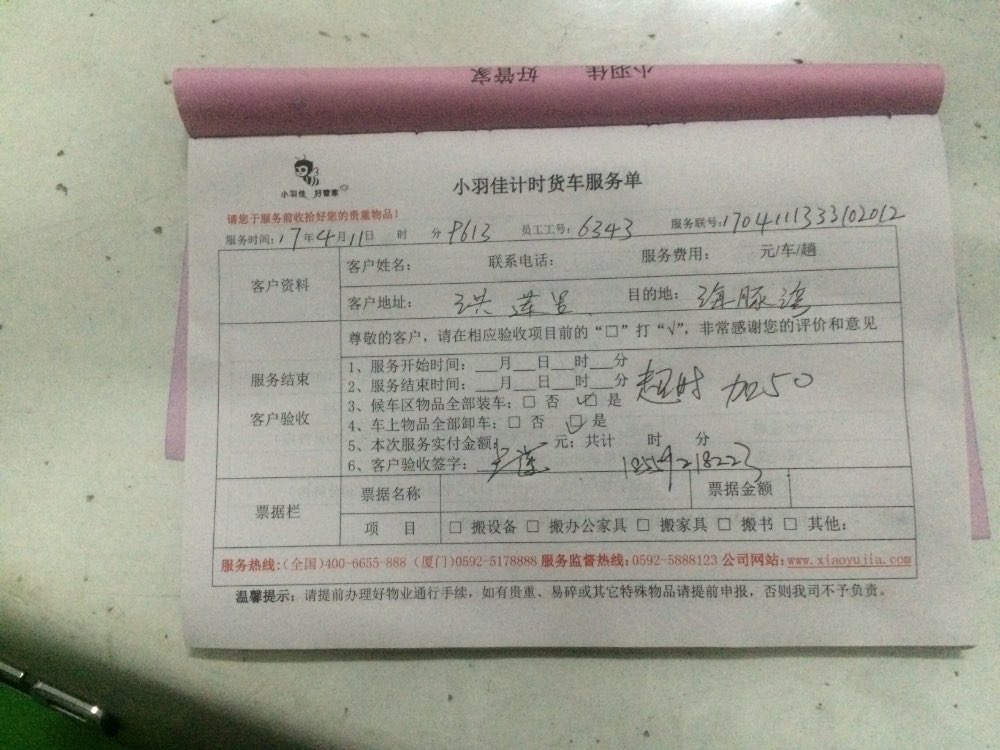 小羽佳 好管家
小羽佳 好管家
小羽佳计时货车服务单
请您于服务前收拾好您的贵重物品!
服务时间:17年4月11日 时 分 9613 员工工号:6343 服务联号:1704111333102012
客户资料
客户姓名: 联系电话: 服务费用: 元/车/趟
客户地址: 洪莲里 目的地: 海豚湾
服务结束
客户验收
尊敬的客户,请在相应验收项目前的“□”打“√”,非常感谢您的评价和意见
1、服务开始时间:___月___日___时___分
2、服务结束时间:___月___日___时___分
超时 加50
3、候车区物品全部装车:□ 否 ☑ 是
4、车上物品全部卸车:□ 否 ☑ 是
5、本次服务实付金额: 元;共计 时 分
6、客户验收签字: 18594218223
票据栏
票据名称 票据金额
项 目 □ 搬设备 □ 搬办公家具 □ 搬家具 □ 搬书 □ 其他:
服务热线:(全国)400-6655-888 (厦门)0592-5178888 服务监督热线:0592-5888123 公司网站:www.xiaoyujia.com
温馨提示:请提前办理好物业通行手续,如有贵重、易碎或其它特殊物品请提前申报,否则我司不予负责。